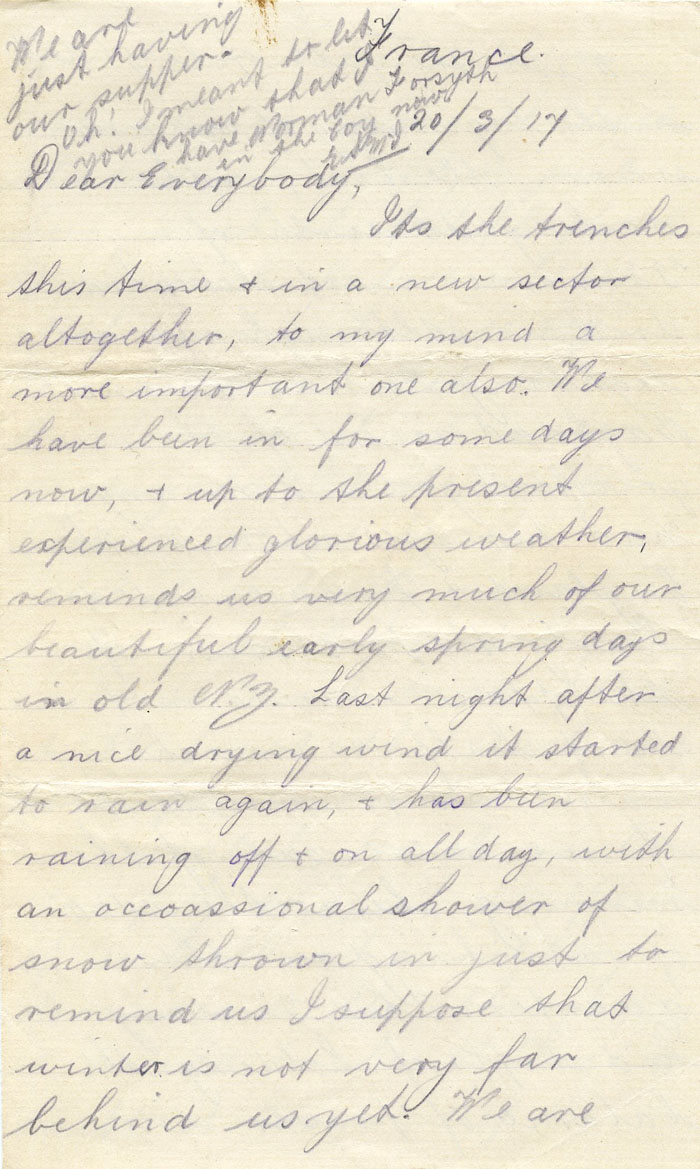 We are
just having
our supper.
Oh! I meant to let
you know that I
have Norman Forsyth
in the Coy now.
France.
20/3/17
Dear Everybody,
Its the trenches
this time + in a new sector
altogether, to my mind a
more important one also. We
have been in for some days
now, + up to the present
experienced glorious weather,
reminds us very much of our
beautiful early spring days
in old N.Z. Last night after
a nice drying wind it started
to rain again, + has been
raining off + on all day, with
an occoassional shower of
snow thrown in just to
remind us I suppose that
winter is not very far
behind us yet. We are